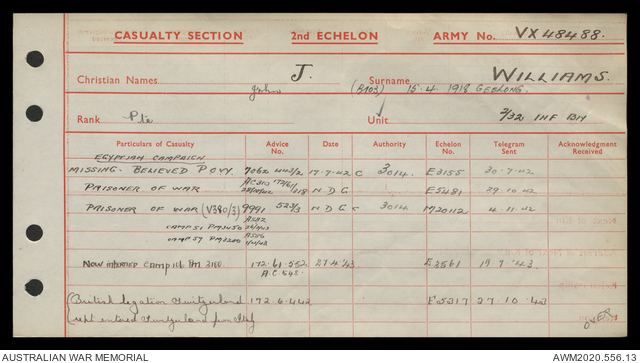 CASUALTY SECTION 2nd ECHELON ARMY No. VX48488.
Christian Names J. Surname WILLIAMS.
John (B103) 15.4.1918 GEELONG.
Rank Pte Unit 2/32 INF BN
Particulars of Casualty Advice No. Date Authority Echelon No. Telegram Sent Acknowledgment Received
EGYPTIAN CAMPAIGN
MISSING. BELIEVED P.O.W. 7062 443/2 17.7.42 C 3014. E3155 30.7.42
PRISONER OF WAR N D G E5481 29.10.42
PRISONER OF WAR (V380/3) 9991 523/3 N D G C 3014 M20112 4.11.42
CAMP 51 PM 3450
CAMP 57 PM 3200
Now interned Camp 106 PM 3100 172.61.552 27.4.43 E3561 19.7.43
A.C 545.
(British legation Switzerland 172.6.442 E5317 27.10.43
rept entered Switzerland from Italy OVER
AUSTRALIAN WAR MEMORIAL AWM2020.556.13